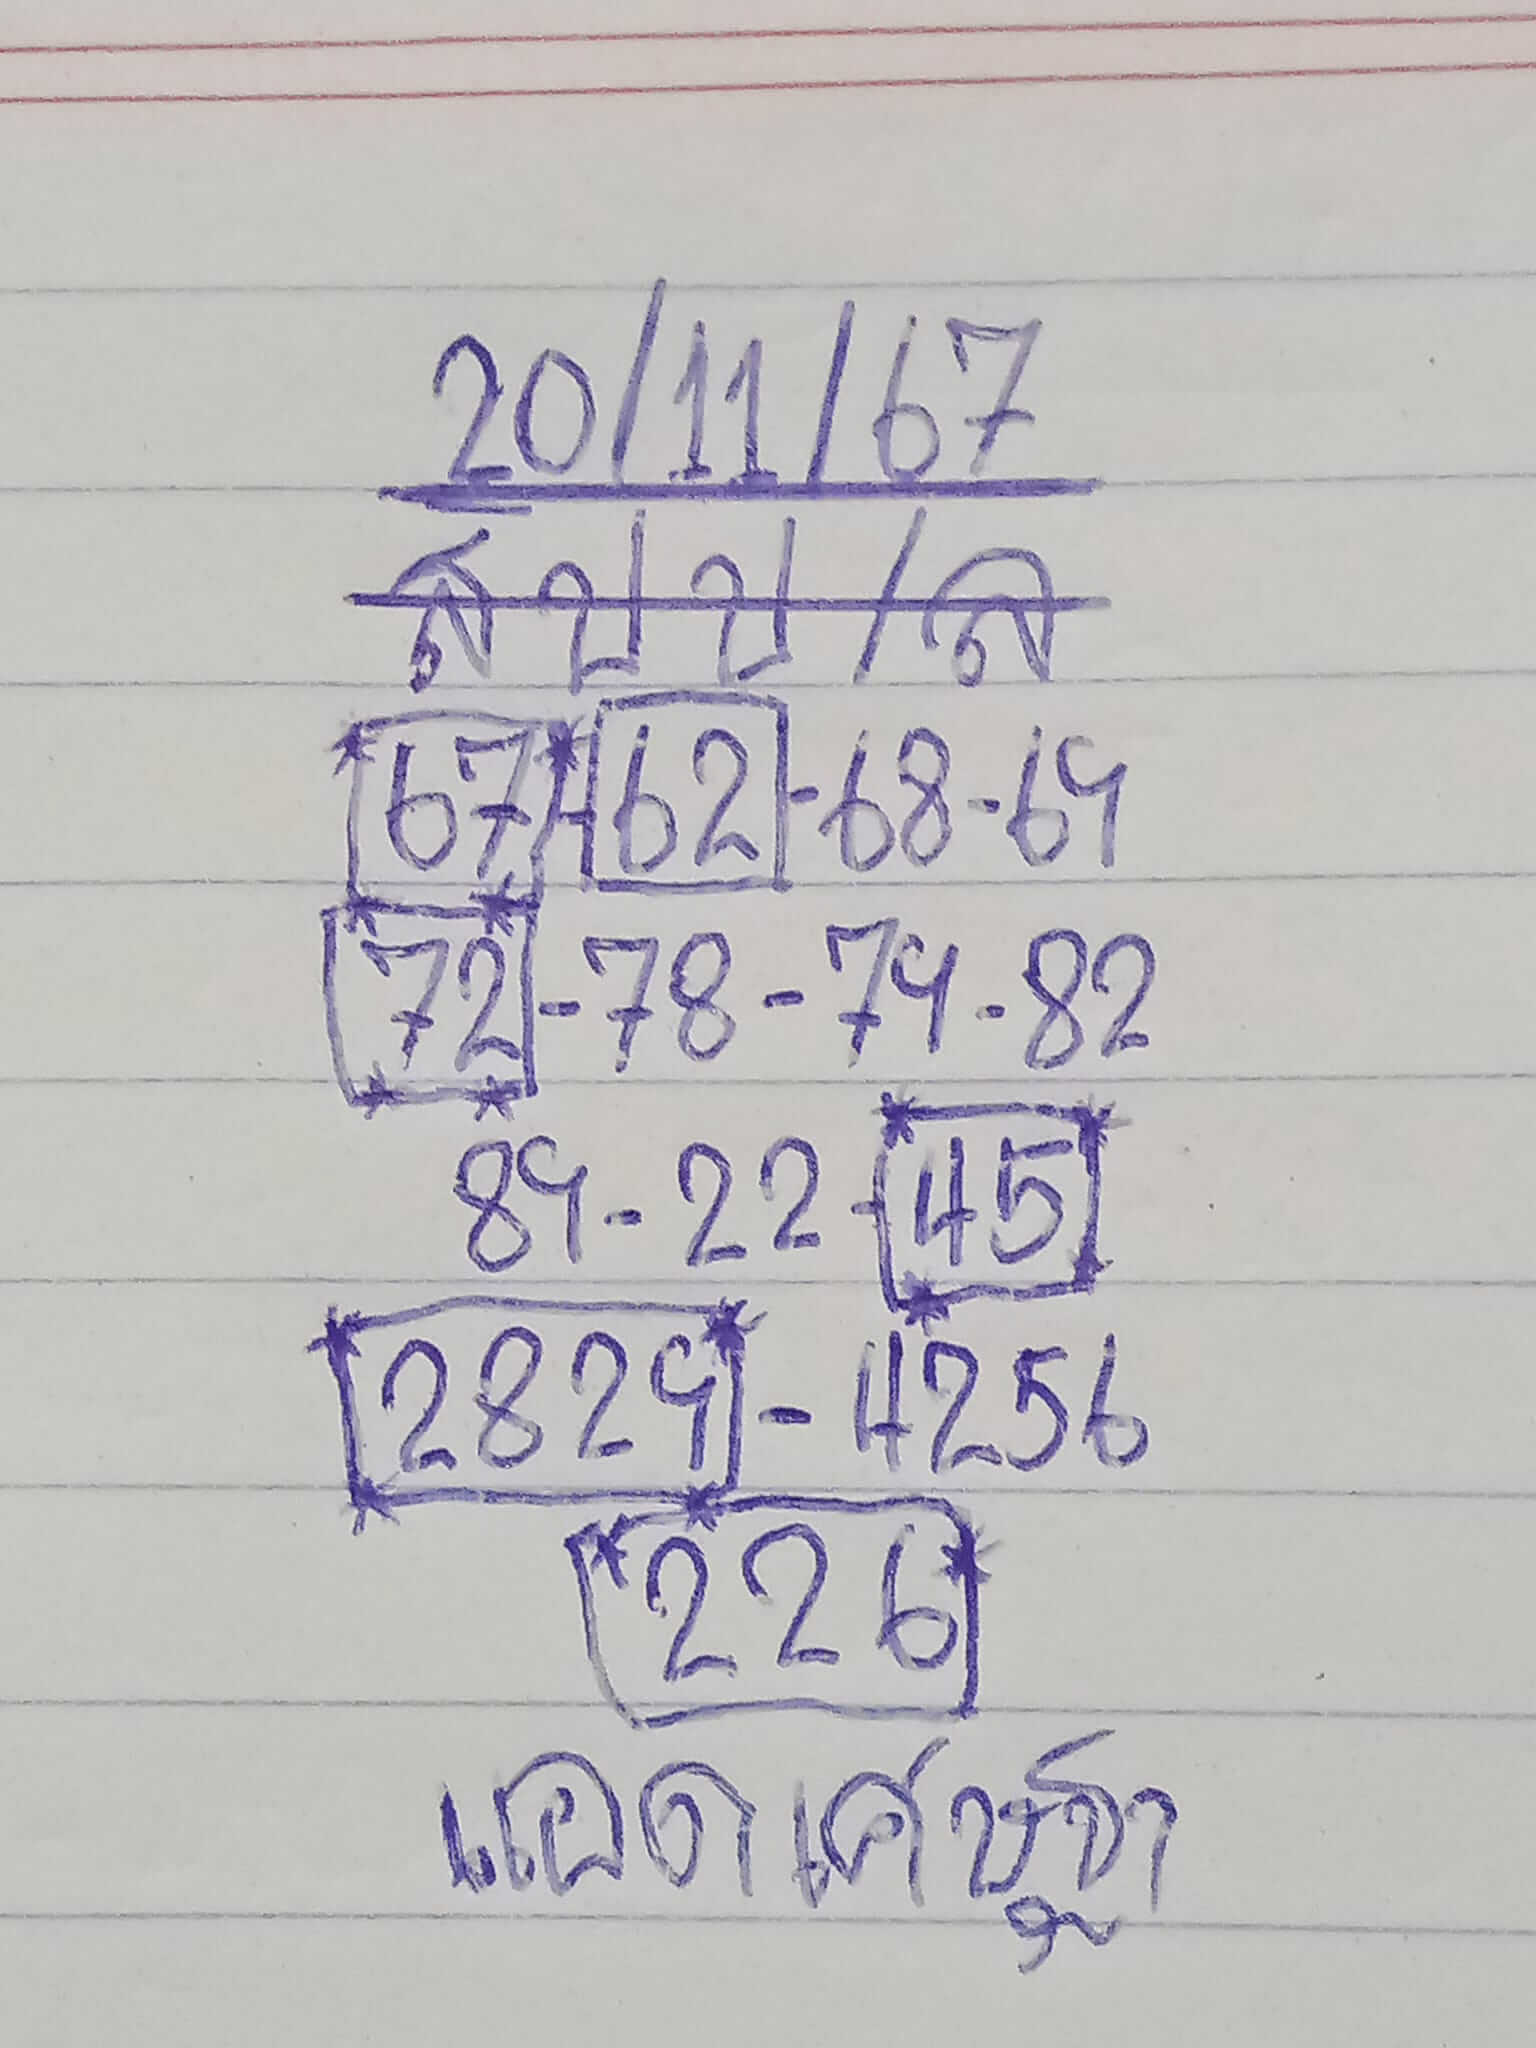 20/11/67
สปป/ล
67-62-68-69
72-78-79-82
89-22-45
2829-4256
226
แอดเศษฐา